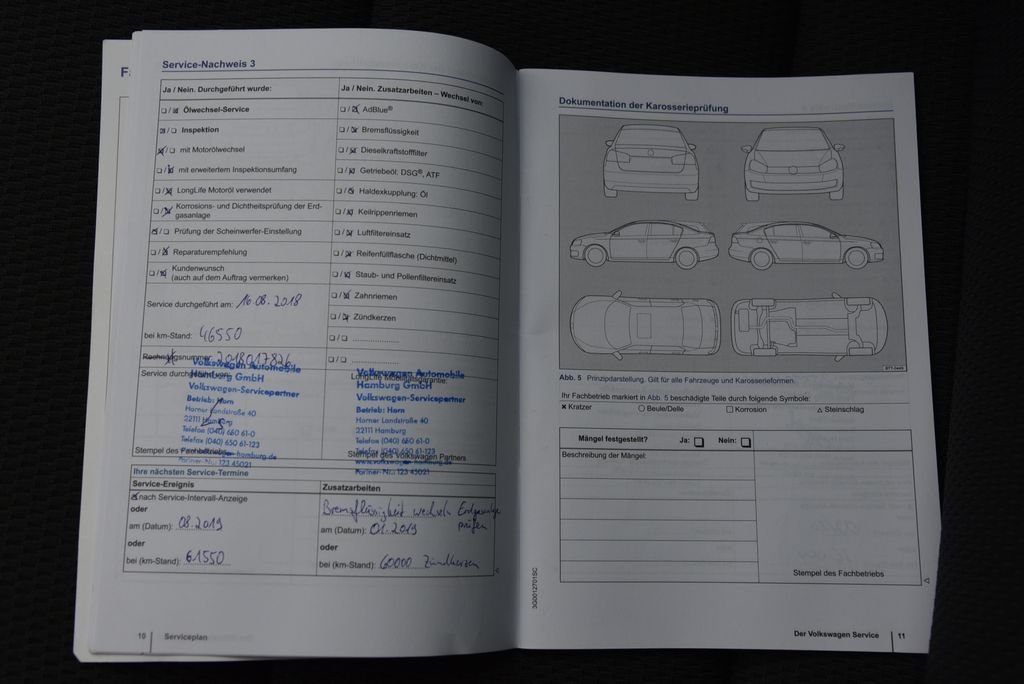 Service-Nachweis 3
Ja / Nein. Durchgeführt wurde:
Ölwechsel-Service
Inspektion
mit Motorölwechsel
mit erweitertem Inspektionsumfang
LongLife Motoröl verwendet
Korrosions- und Dichtheitsprüfung der Erd-
gasanlage
Prüfung der Scheinwerfer-Einstellung
Reparaturempfehlung
Kundenwunsch
(auch auf dem Auftrag vermerken)
Service durchgeführt am: 16.08.2018
bei km-Stand: 46550
Rechnungsnummer: 2018017826
Service durchgeführt von:
Volkswagen Automobile
Hamburg GmbH
Volkswagen-Servicepartner
Betrieb: Horn
Horner Landstraße 40
22111 Hamburg
Telefon (040) 650 61-0
Telefax (040) 650 61-123
Partner-Nr.: 123 45021
Stempel des Fachbetriebs
Ja / Nein. Zusatzarbeiten – Wechsel von:
AdBlue®
Bremsflüssigkeit
Dieselkraftstofffilter
Getriebeöl: DSG®, ATF
Haldexkupplung: Öl
Keilrippenriemen
Luftfiltereinsatz
Reifenfüllflasche (Dichtmittel)
Staub- und Pollenfiltereinsatz
Zahnriemen
Zündkerzen
LongLife Mobilitätsgarantie:
Volkswagen Automobile
Hamburg GmbH
Volkswagen-Servicepartner
Betrieb: Horn
Horner Landstraße 40
22111 Hamburg
Telefon (040) 650 61-0
Telefax (040) 650 61-123
Partner-Nr.: 123 45021
Stempel des Volkswagen Partners
Ihre nächsten Service-Termine
Service-Ereignis
nach Service-Intervall-Anzeige
oder
am (Datum): 08.2019
oder
bei (km-Stand): 61550
Zusatzarbeiten
Bremsflüssigkeit wechseln Erdgasanlage
prüfen
am (Datum): 01.2019
oder
bei (km-Stand): 60000 Zündkerzen
10 Serviceplan
Dokumentation der Karosserieprüfung
Abb. 5 Prinzipdarstellung. Gilt für alle Fahrzeuge und Karosserieformen.
Ihr Fachbetrieb markiert in Abb. 5 beschädigte Teile durch folgende Symbole:
× Kratzer ○ Beule/Delle □ Korrosion △ Steinschlag
Mängel festgestellt? Ja: Nein:
Beschreibung der Mängel:
Stempel des Fachbetriebs
3G0012701SC
Der Volkswagen Service 11